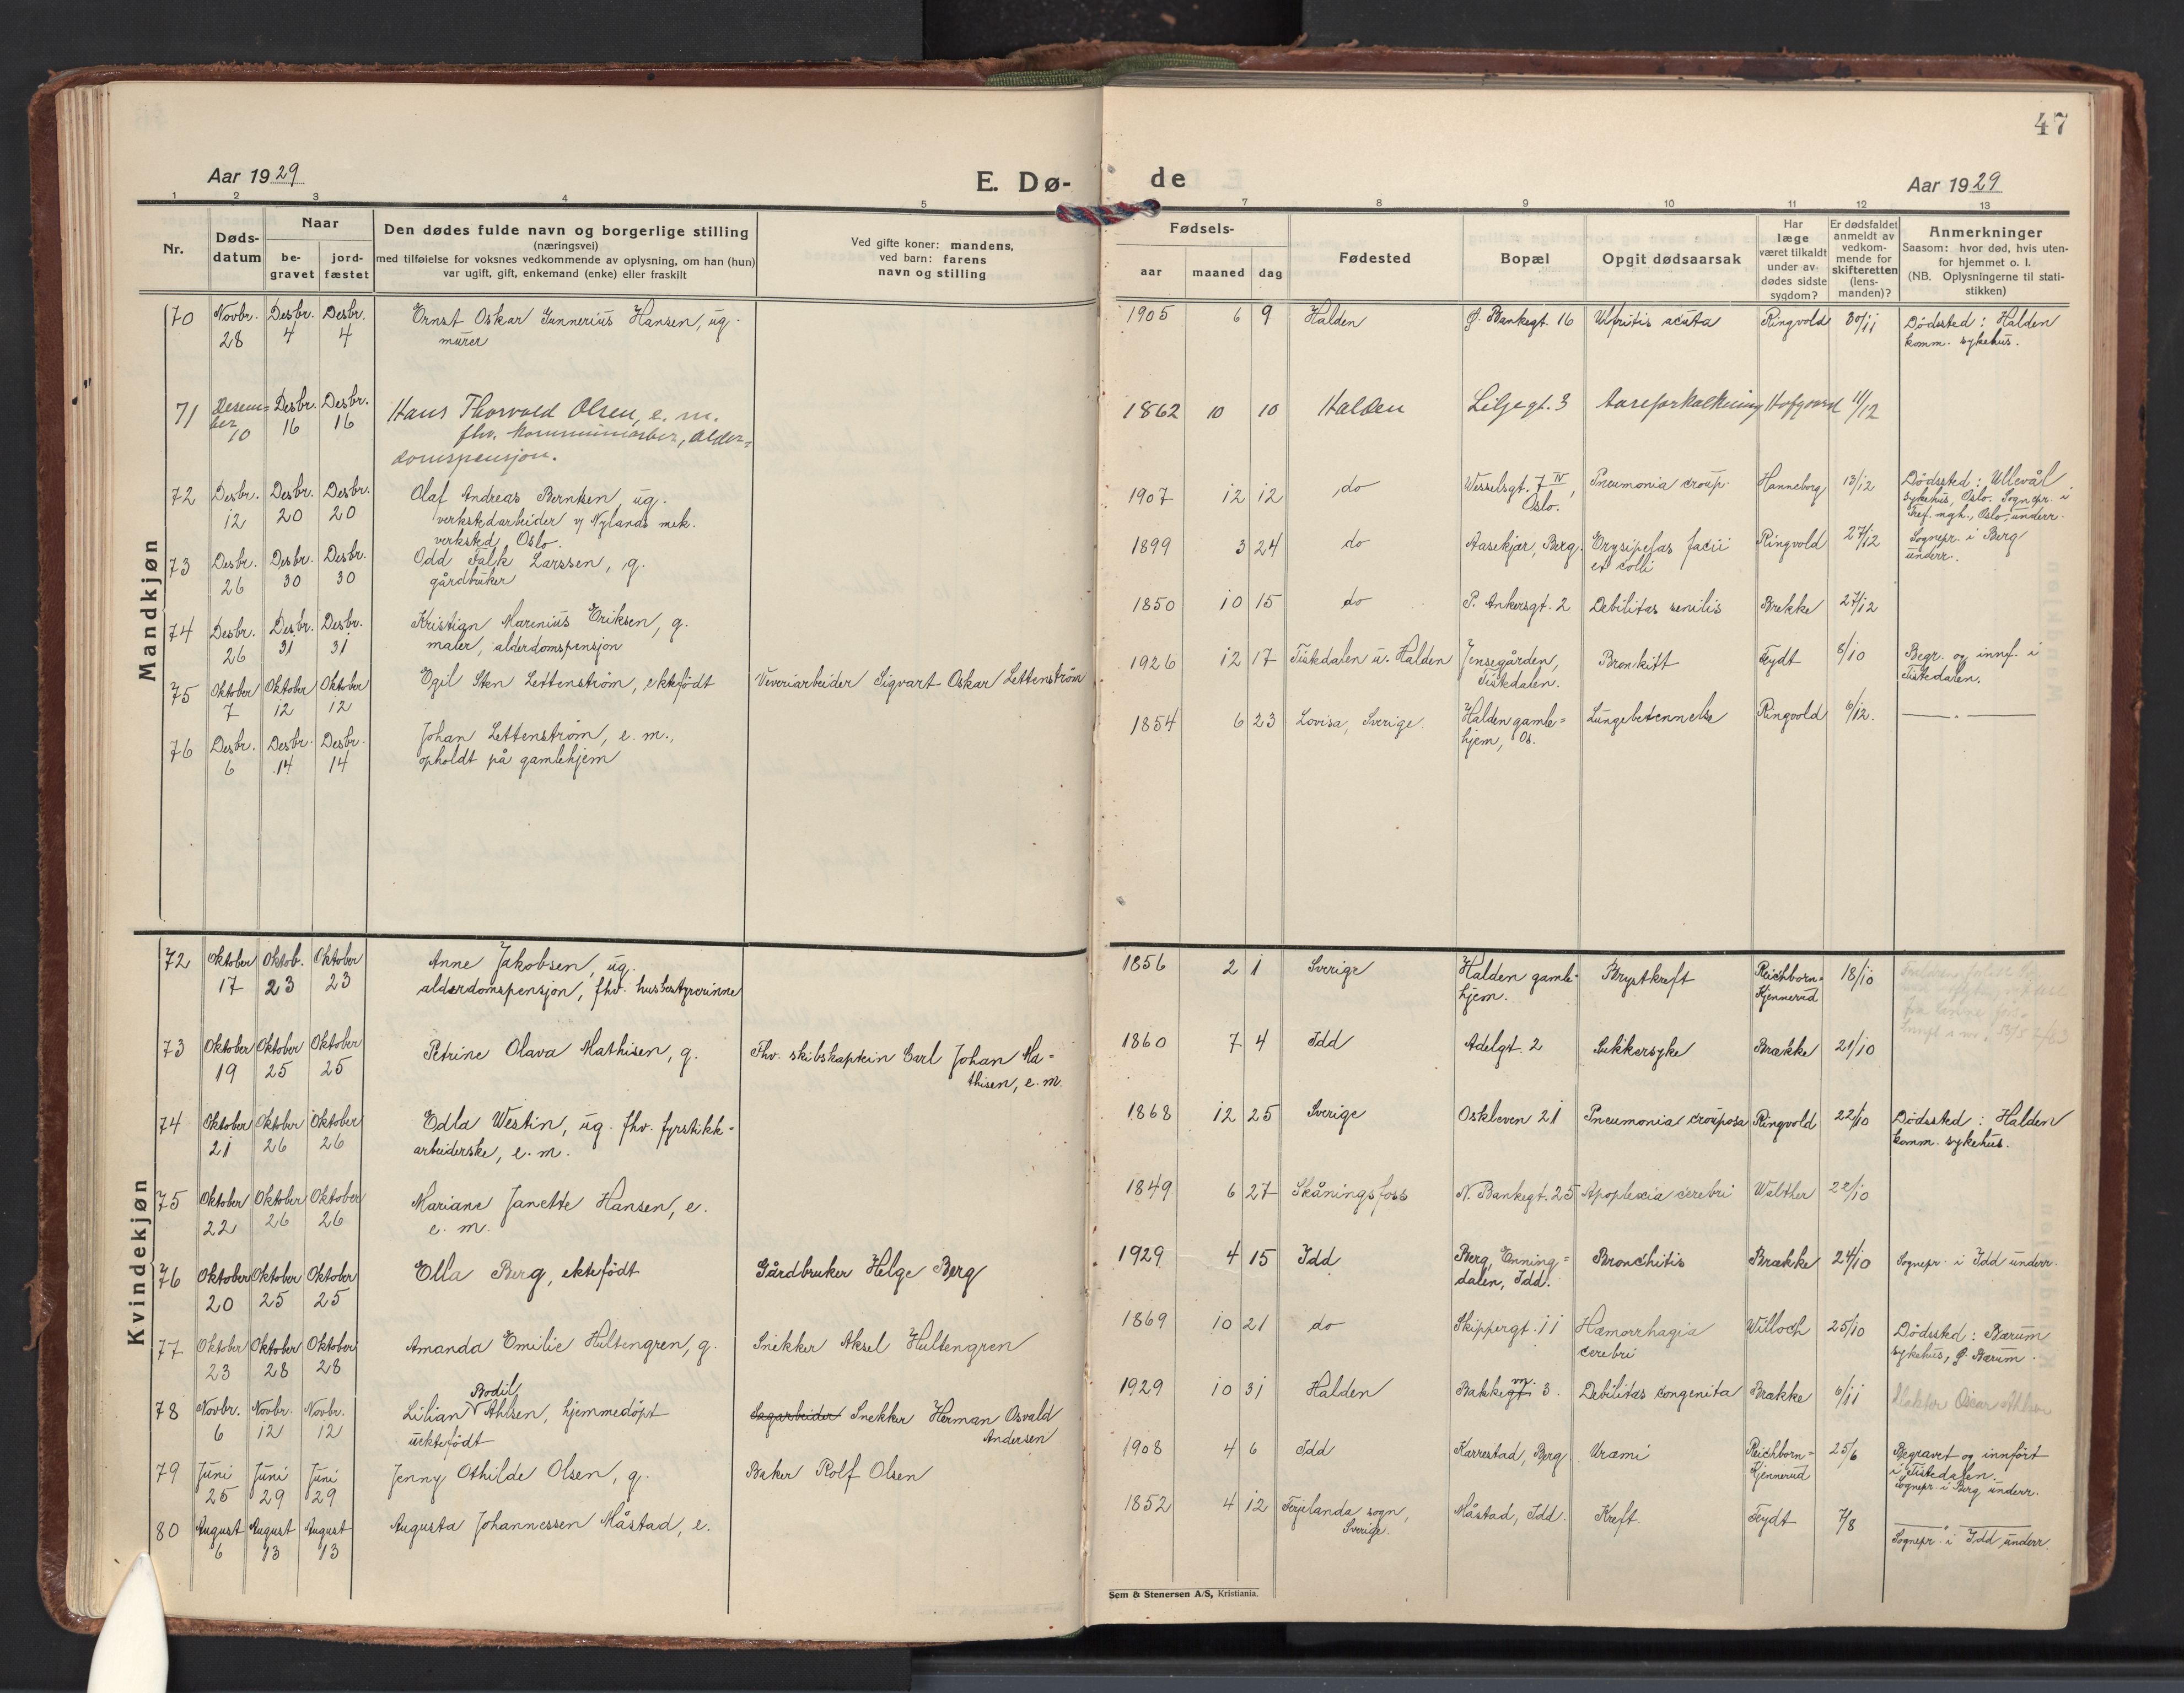 47
Aar 1929
E. Dø-
de
Aar 1929
1 2 3 4 5
7 8 9 10 11 12 13
Nr.
Døds-
datum
Naar
be-
gravet
jord-
fæstet
Den dødes fulde navn og borgerlige stilling
(næringsvei)
med tilføielse for voksnes vedkommende av oplysning, om han (hun)
var ugift, gift, enkemand (enke) eller fraskilt
Ved gifte koner: mandens,
ved barn: farens
navn og stilling
Fødsels-
aar maaned dag
Fødested
Bopæl
Opgit dødsaarsak
Har
læge
været tilkaldt
under av-
dødes sidste
sygdom?
Er dødsfaldet
anmeldt av
vedkom-
mende for
skifteretten
(lens-
manden)?
Anmerkninger
Saasom: hvor død, hvis uten-
for hjemmet o. l.
(NB. Oplysningerne til stati-
stikken)
Mandkjøn
70 Novbr. 28 Desbr. 4 Desbr. 4 Ernst Oskar Gunnerius Hansen, ug.
murer
1905 6 9 Halden Ø. Bankegt. 16 acuta Ringvold 30/11 Dödssted: Halden
komm. sykehus.
71 Desem=
ber 10 Desbr. 16 Desbr. 16 Hans Thorvald Olsen, e. m.
fhv. kommunearber, alder=
domspensjon.
1862 10 10 Halden Liljegt. 3 Aareforkalkning Hofgaard 11/12
72 Desbr. 12 Desbr. 20 Desbr. 20 Olaf Andreas Berntsen, ug.
verkstedarbeider v/ Nylands mek.
verksted, Oslo.
1907 12 12 do Wesselsgt. 7 IV,
Oslo. Pneumonia croup. Hanneborg 13/12 Dödssted: Ullevål
sykehus, Oslo. Sognepr. i
Tref. mgh., Oslo, underr.
73 Desbr. 26 Desbr. 30 Desbr. 30 Odd Falk Larssen, g.
gårdbruker
1899 3 24 do Aasekjær, Berg Erysipelas facii
et colli Ringvold 27/12 Sognepr. i Berg
underr.
74 Desbr. 26 Desbr. 31 Desbr. 31 Kristian Marenius Eriksen, g.
maler, alderdomspensjon
1850 10 15 do P. Ankersgt. 2 Debilitas senilis Brekke 27/12
75 Oktober 7 Oktober 12 Oktober 12 Egil Sten Lettenstrøm, ektefödt Veveriarbeider Sigvart Oskar Lettenstrøm
1926 12 17 Tistedalen u. Halden Jensegården,
Tistedalen. Bronkitt Feydt 8/10 Begr. og innf. i
Tistedalen.
76 Desbr. 6 Desbr. 14 Desbr. 14 Johan Lettenstrøm, e. m.,
opholdt på gamlehjem
1854 6 23 Lovisa, Sverige. Halden gamle=
hjem, Os. Lungebetennelse Ringvold 6/12. —〃—
Kvindekjøn
72 Oktober 17 Oktob. 23 Oktober 23 Anne Jakobsen, ug.
alderdomspensjon, fhv. husbestyrerinne
1856 2 1 Sverige Halden gamle-
hjem. Brystkreft Reichborn=
Kjennerud 18/10
73 Oktober 19 Oktober 25 Oktober 25 Petrine Olava Mathisen, g. Fhv. skibskaptein Carl Johan Ma=
thisen, e. m.
1860 7 4 Idd Adelgt. 2 Sukkersyke Brække 21/10
74 Oktober 21 Oktober 26 Oktober 26 Edla Westin, ug. fhv. fyrstikk=
arbeiderske, e. m.
1868 12 25 Sverige Oskleven 21 Pneumonia crouposa Ringvold 22/10 Dödssted: Halden
komm. sykehus.
75 Oktober 22 Oktober 26 Oktober 26 Mariane Janette Hansen, e.
e. m.
1849 6 27 Skåningsfoss N. Bankegt. 25 Apoplexia cerebri Walther 22/10
76 Oktober 20 Oktober 25 Oktober 25 Ella Berg, ektefödt Gårdbruker Helge Berg
1929 4 15 Idd Berg, Enning=
dalen, Idd. Bronchitis Brække 24/10 Sognepr. i Idd underr.
77 Oktober 23 Oktober 28 Oktober 28 Amanda Emilie Hultengren, g. Snekker Aksel Hultengren
1869 10 21 do Skippergt. 11 Hæmorrhagia
cerebri Willoch 25/10 Dödssted: Bærum
sykehus, Ø. Bærum.
78 Novbr. 6 Novbr. 12 Novbr. 12 Lilian Bodil Ahlsen, hjemmedöpt
uektefödt Sagarbeider Snekker Herman Osvald
Andersen
1929 10 31 Halden Bakkegt. vn. 3. Debilitas congenita Brække 6/11
79 Juni 25 Juni 29 Juni 29 Jenny Othilde Olsen, g. Baker Rolf Olsen
1908 4 6 Idd Karrestad, Berg Uræmi Reichborn=
Kjennerud 25/6 Begravet og innfört
i Tistedalen.
Sognepr. i Berg underr.
80 August 6 August 13 August 13 Augusta Johannessen Måstad, e.
1852 4 12 sogn,
Sverige. Måstad, Idd. Kreft. Feydt 7/8 —〃—
Sognepr. i Idd underr.
Sem & Stenersen A/S, Kristiania.